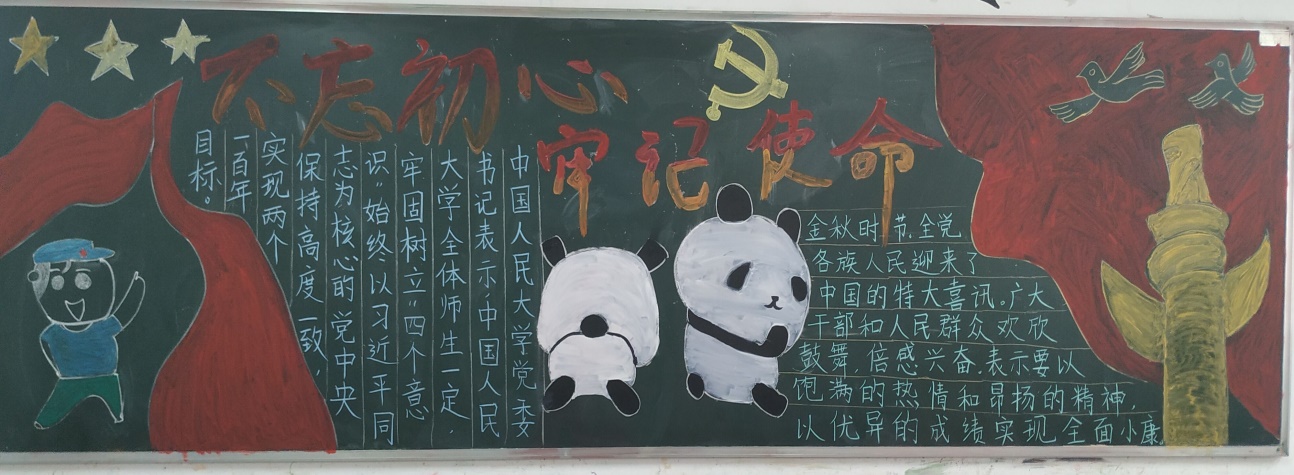 不忘初心
牢记使命
中国人民大学党委
书记表示,中国人民
大学全体师生一定,
牢固树立“四个意
识”始终以习近平同
志为核心的党中央
保持高度一致,
实现两个
一百年
目标。
金秋时节,全党
各族人民迎来了
中国的特大喜讯。广大
干部和人民群众欢欣
鼓舞,倍感兴奋,表示要以
饱满的热情和昂扬的精神,
以优异的成绩实现全面小康